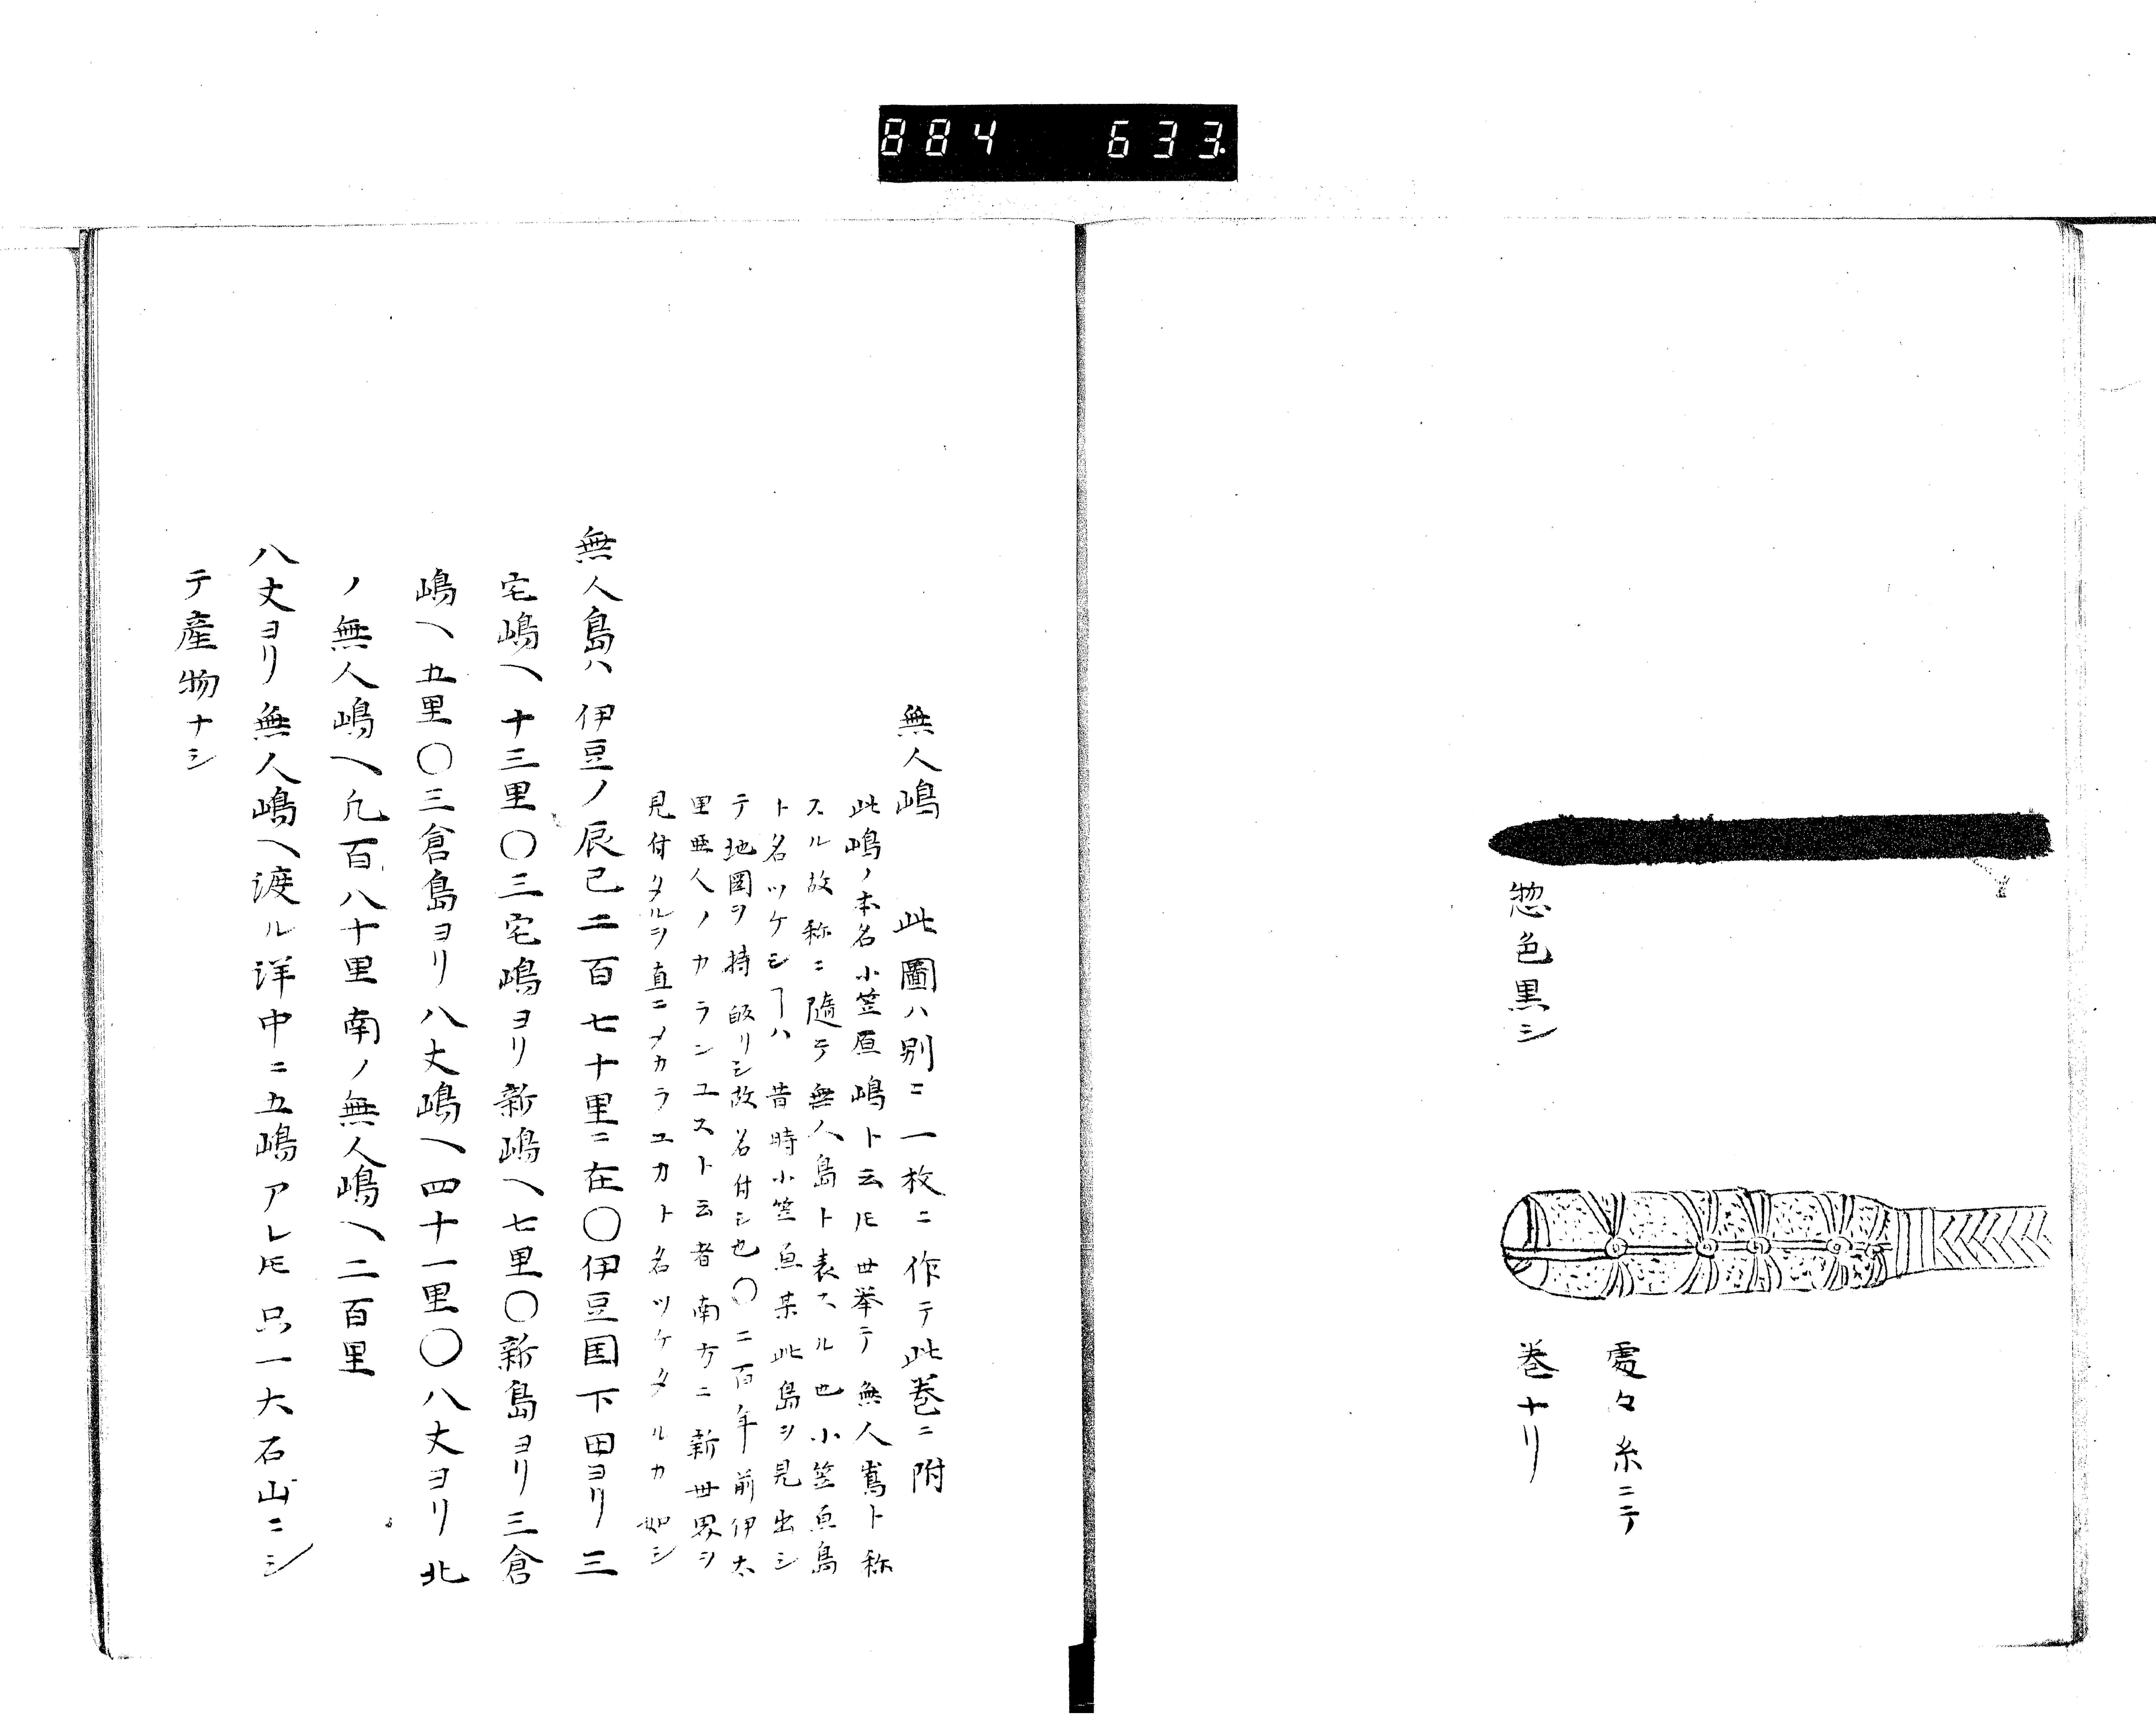 884 633
惣色黒シ
處々糸ニテ
巻ナリ
無人嶋 此圖ハ別ニ一枚ニ作テ此巻ニ附
此嶋ノ本名小笠原嶋ト云𪜈世挙テ無人嶌ト称
スル故称ニ隨テ無人島ト表スル也小笠原島
ト名ツケシヿハ昔時小笠原某此島ヲ見出シ
テ地圖ヲ持皈リシ故名付シ也〇二百年前伊太
里亜人ノカランユスト云者南方ニ新世界ヲ
見付タルヲ直ニメカラユカト名ツケタルカ如シ
無人島ハ伊豆ノ辰己二百七十里ニ在〇伊豆国下田ヨリ三
宅嶋ヘ十三里〇三宅嶋ヨリ新嶋ヘ七里〇新島ヨリ三倉
嶋ヘ五里〇三倉島ヨリ八丈嶋ヘ四十一里〇八丈ヨリ北
ノ無人嶋ヘ凡百八十里南ノ無人嶋ヘ二百里
八丈ヨリ無人嶋ヘ渡ル洋中ニ五嶋アレ𪜈只一大石山ニシ
テ産物ナシ